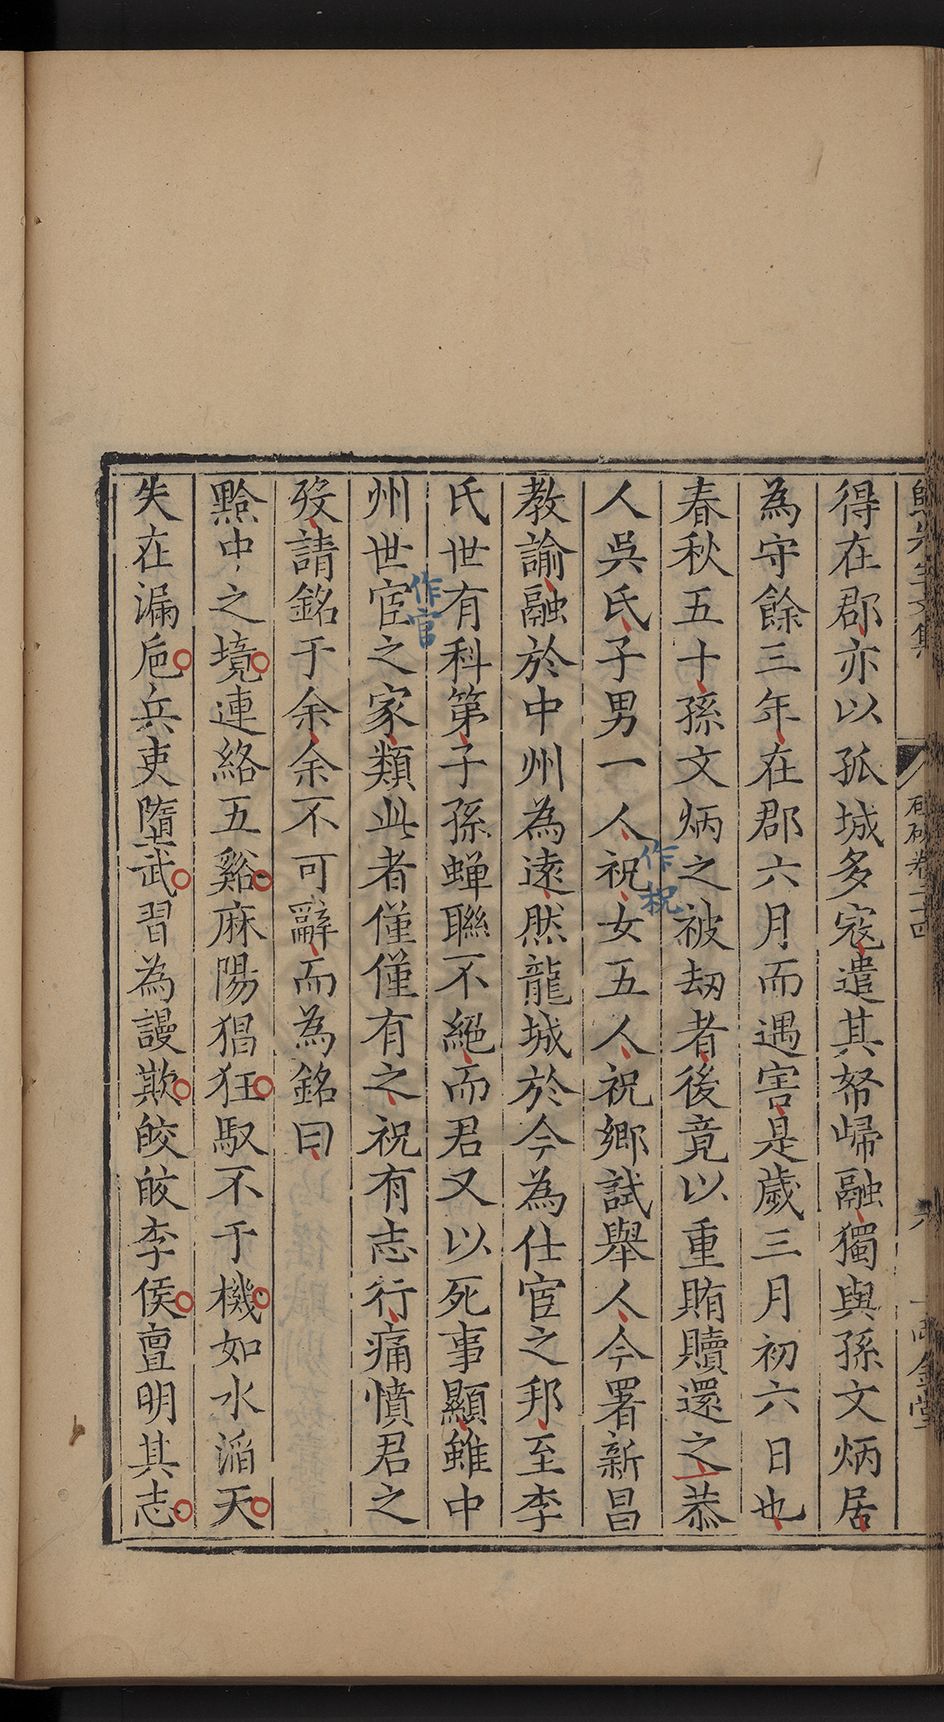 歸先生文集
碑碣卷二十四
六
雨金堂
得在郡亦以孤城多寇遣其帑歸融獨與孫文炳居
為守餘三年在郡六月而遇害是歲三月初六日也
春秋五十孫文炳之被刼者後竟以重賄贖還之恭
人吳氏子男一人祝女五人祝鄉試舉人今署新昌
教諭融於中州為遠然龍城於今為仕宦之邦至李
氏世有科第子孫蟬聯不絕而君又以死事顯雖中
州世宦之家類此者僅僅有之祝有志行痛憤君之
歿請銘于余余不可辭而為銘曰
黔中之境連絡五谿麻陽猖狂馭不于機如水滔天
失在漏巵兵吏隳武習為謾欺皎皎李侯亶明其志
作祝
作官